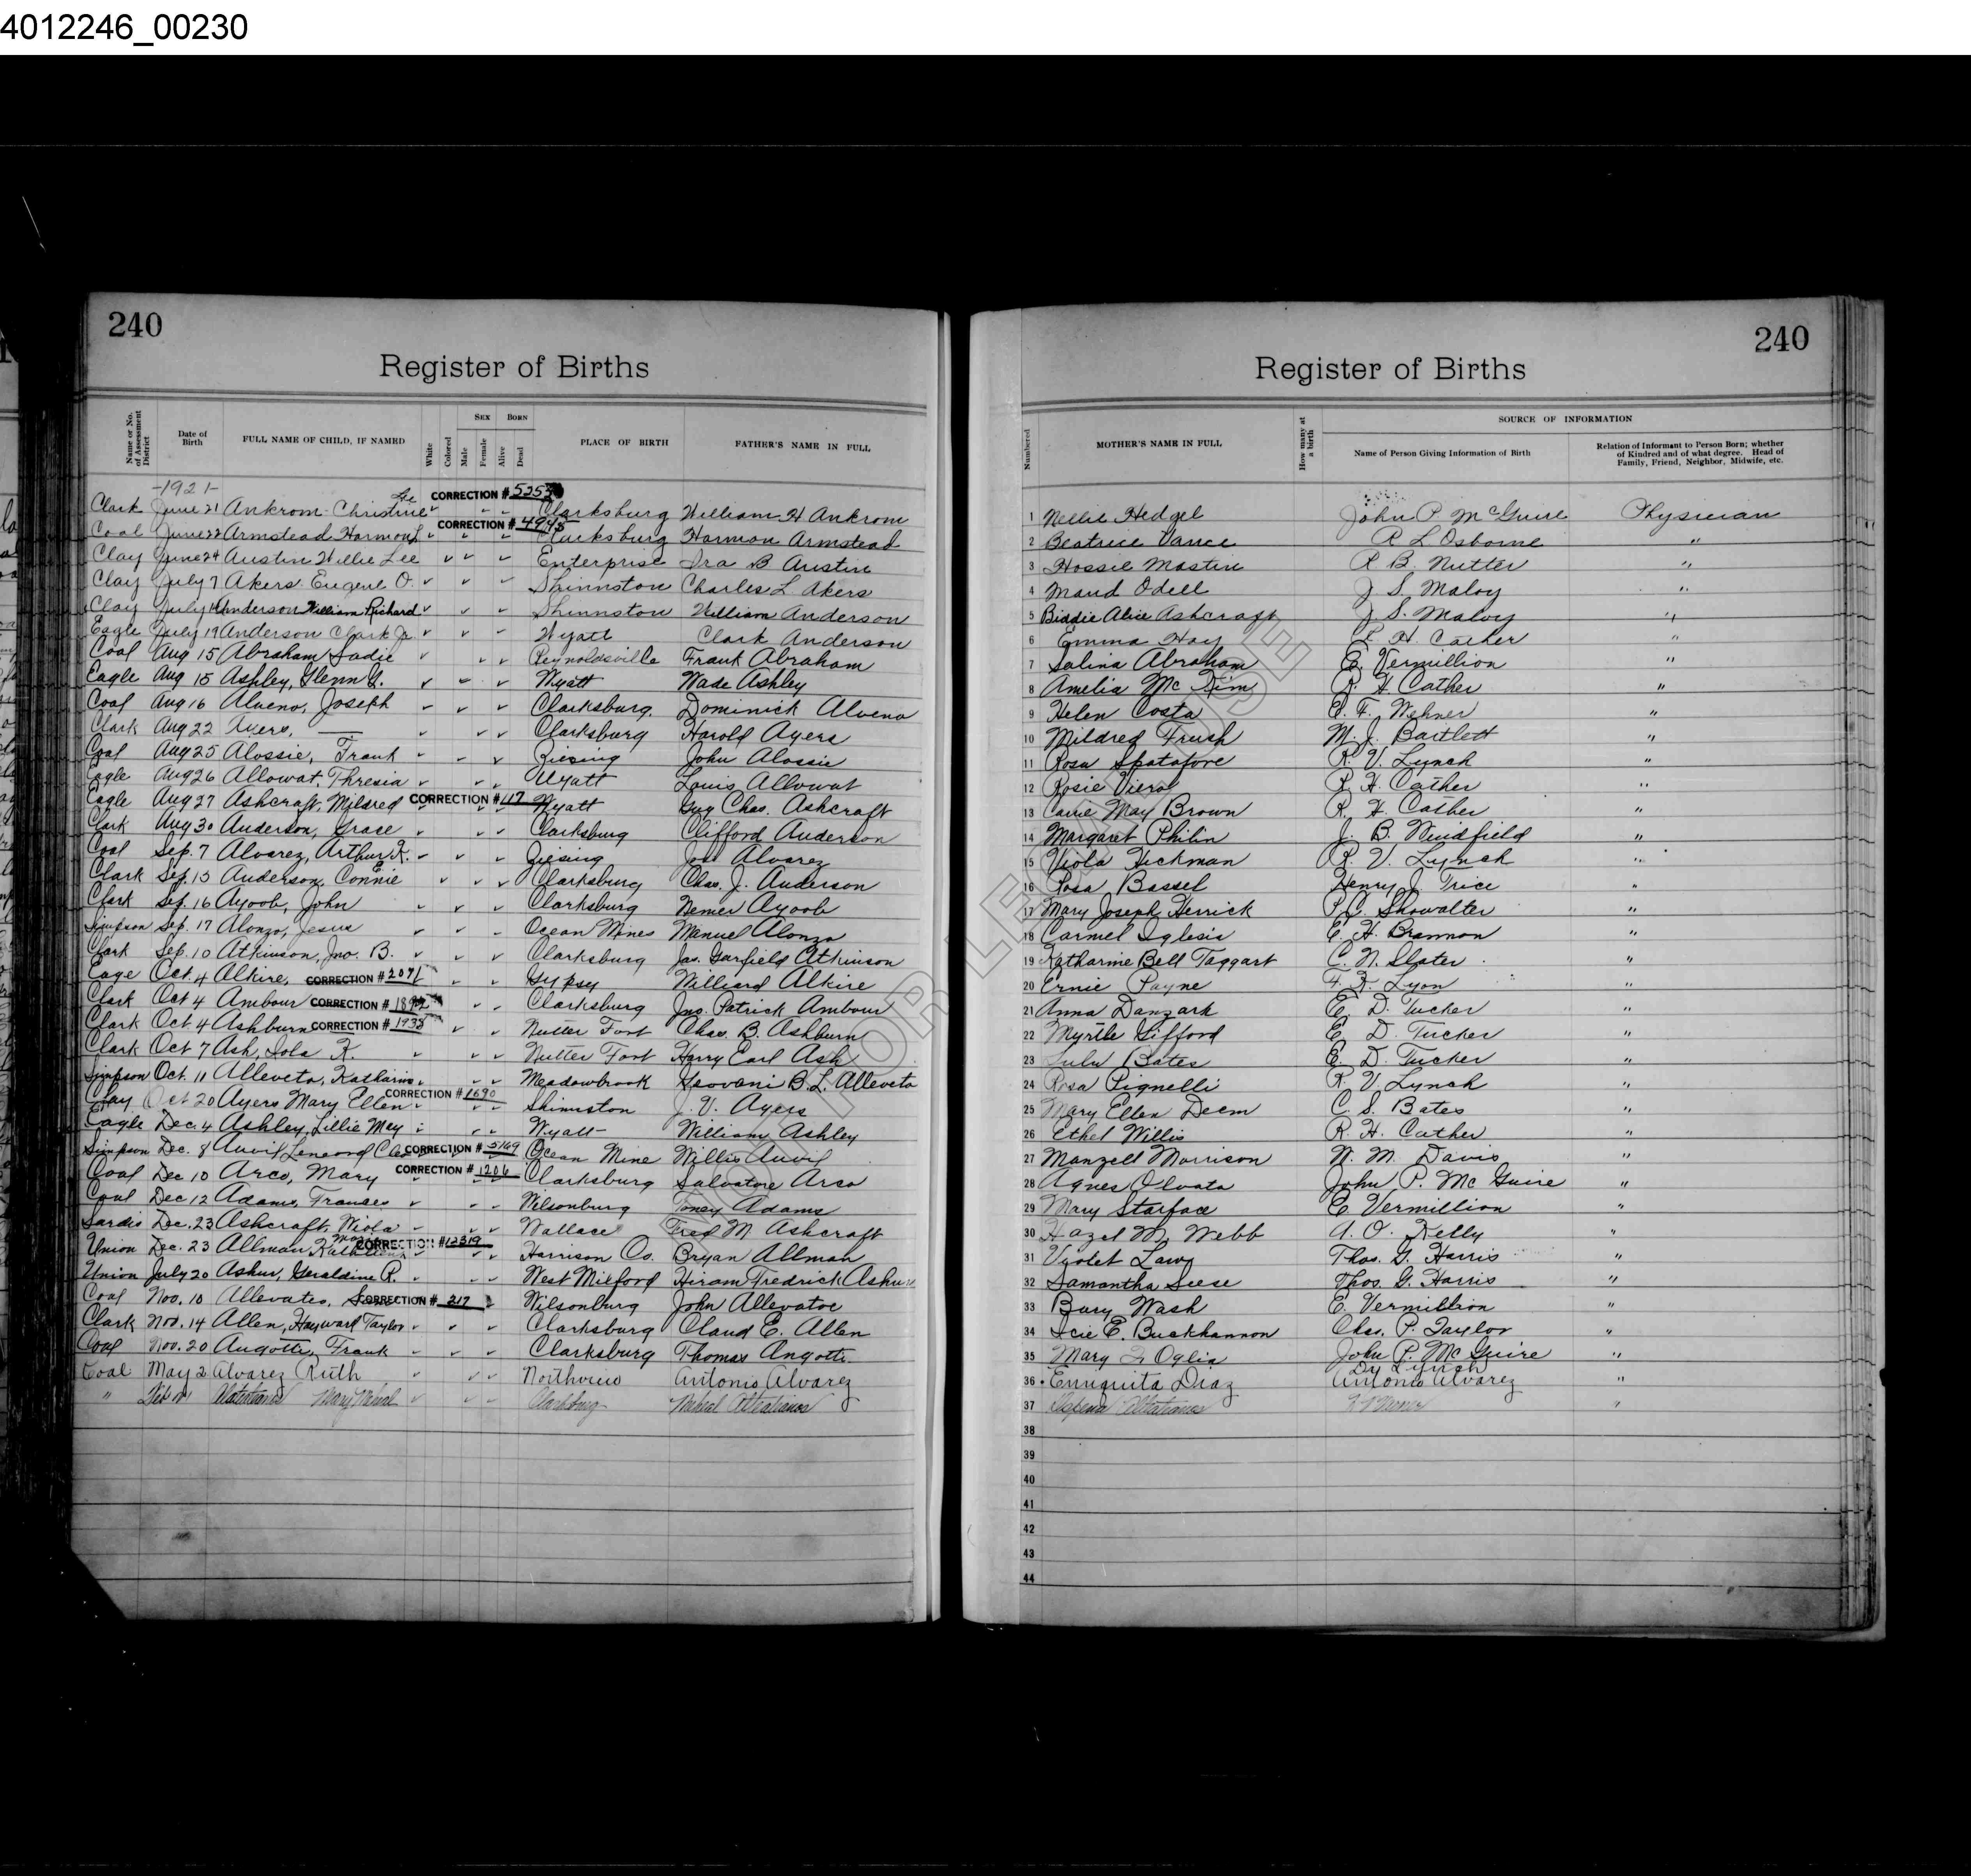 4012246_00230
240
Register of Births
Name or No. of Assessment District
Date of Birth
FULL NAME OF CHILD, IF NAMED
White
Colored
SEX
Male
Female
BORN
Alive
Dead
PLACE OF BIRTH
FATHER'S NAME IN FULL
-1921-
Clark June 21 Ankrom Christine Lee CORRECTION # 5253 Clarksburg William H Ankrom
Coal June 22 Armstead Harmon L CORRECTION # 4945 Clarksburg Harmon Armstead
Clay June 24 Austin Willie Lee Enterprise Ira B Austin
Clay July 7 Akers Eugene O. Shinnston Charles L. Akers
Clay July 14 Anderson William Richard Shinnston William Anderson
Eagle July 19 Anderson Clark Jr Wyatt Clark Anderson
Coal Aug 15 Abraham Sadie Reynoldsville Frank Abraham
Eagle Aug 15 Ashley, Glenn Wyatt Wade Ashley
Coal Aug 16 Alveno, Joseph Clarksburg. Dominick Alveno
Clark Aug 22 Ayers, — Clarksburg Harold Ayers
Coal Aug 25 Alossie, Frank Ziesing John Alossie
Eagle Aug 26 Allowat, Thresia Wyatt Louis Allowat
Eagle Aug 27 Ashcraft, Mildred CORRECTION # 117 Wyatt Guy Chas. Ashcraft
Clark Aug 30 Anderson, Grace Clarksburg Clifford Anderson
Coal Sep. 7 Alvarez, Arthur Ziesing Jose Alvarez
Clark Sep. 13 Anderson, Connie Clarksburg Chas. J. Anderson
Clark Sep. 16 Ayoob, John Clarksburg Nemer Ayoob
Simpson Sep. 17 Alonzo, Jesus Ocean Mines Manuel Alonzo
Clark Sep. 10 Atkinson, Jno. B. Clarksburg Jas. Garfield Atkinson
Eagle Oct. 4 Alkire, CORRECTION # 2071 Gypsy Williard Alkire
Clark Oct 4 Ambour CORRECTION # 1892 Clarksburg Jno. Patrick Ambour
Clark Oct 4 Ashburn CORRECTION # 1935 Nutter Fort Chas. B. Ashburn
Clark Oct 7 Ash, Iola K. Nutter Fort Harry Earl Ash
Simpson Oct. 11 Alleveto, Katharine Meadowbrook Geovani B. L. Alleveto
Clay Oct 20 Ayers Mary Ellen CORRECTION # 1690 Shinnston J. V. Ayers
Eagle Dec. 4 Ashley, Lillie May Wyatt William Ashley
Simpson Dec. 8 Auvil, Leneord CORRECTION # 5169 Ocean Mine Willis Auvil
Coal Dec 10 Arco, Mary CORRECTION # 1206 Clarksburg Salvatore Arco
Coal Dec 12 Adams, Frances Wilsonburg Toney Adams
Sardis Dec. 23 Ashcraft, Wiola Wallace Fred M. Ashcraft
Union Dec. 23 Allman CORRECTION # 12319 Harrison Co. Bryan Allman
Union July 20 Ashur, Geraldine R. West Milford Hiram Fredrick Ashur
Coal Nov. 10 Allevato, CORRECTION # 217 Wilsonburg John Allevatoe
Clark Nov. 14 Allen, Hayward Taylor Clarksburg Claud E. Allen
Coal Nov. 20 Angotti, Frank Clarksburg Thomas Angotti
Coal May 2 Alvarez Ruth Northview Antonio Alvarez
" Clarksburg
240
Register of Births
Numbered
MOTHER'S NAME IN FULL
How many at a birth
SOURCE OF INFORMATION
Name of Person Giving Information of Birth
Relation of Informant to Person Born; whether of Kindred and of what degree. Head of Family, Friend, Neighbor, Midwife, etc.
1 Nellie Hedgel John P McGuire Physician
2 Beatrice Vance R L Osborne "
3 Hossie Mastin R B. Nutter "
4 Maud Odell J. S. Maloy "
5 Biddie Alice Ashcraft J. S. Maloy "
6 Emma Hay R. H. Cather "
7 Salina Abraham E. Vermillion "
8 Amelia Mc Kim R. H. Cather "
9 Helen Costa C. F. Wehner "
10 Mildred Frush M. J. Bartlett "
11 Rosa Spatafore R. V. Lynch "
12 Rosie Viero R. H. Cather "
13 Carrie May Brown R. H. Cather "
14 Margaret Philin J. B. Nuidfield "
15 Viola Hickman R. V. Lynch "
16 Rosa Bassel Henry J. Trice "
17 Mary Joseph Herrick P. C. Showalter "
18 Carmel Iglesis E. H. Brannon "
19 Katharine Bell Taggart C. N. Slater "
20 Ernie Payne F. K. Lyon "
21 Anna Danzark E. D. Tucker "
22 Myrtle Gifford E. D. Tucker "
23 Lulu Bates E. D. Tucker "
24 Rosa Pignelli R. V. Lynch "
25 Mary Ellen Deem C. S. Bates "
26 Ethel Willis R. H. Cather "
27 Manzell Morrison W. M. Davis "
28 Agnes Olvata John P. Mc Guire "
29 Mary Starface E. Vermillion "
30 Hazel M. Webb A. O. Kelly "
31 Violet Law Thos. G. Harris "
32 Samantha Seese Thos. G. Harris "
33 Bury Wash E. Vermillion "
34 Icie E. Buckhannon Chas. P. Taylor "
35 Mary Oglia John P. Mc Guire "
36 Enriquita Diaz Dr Lynch Antonio Alvarez "
37 "
38
39
40
41
42
43
44
NOT FOR LEGAL USE